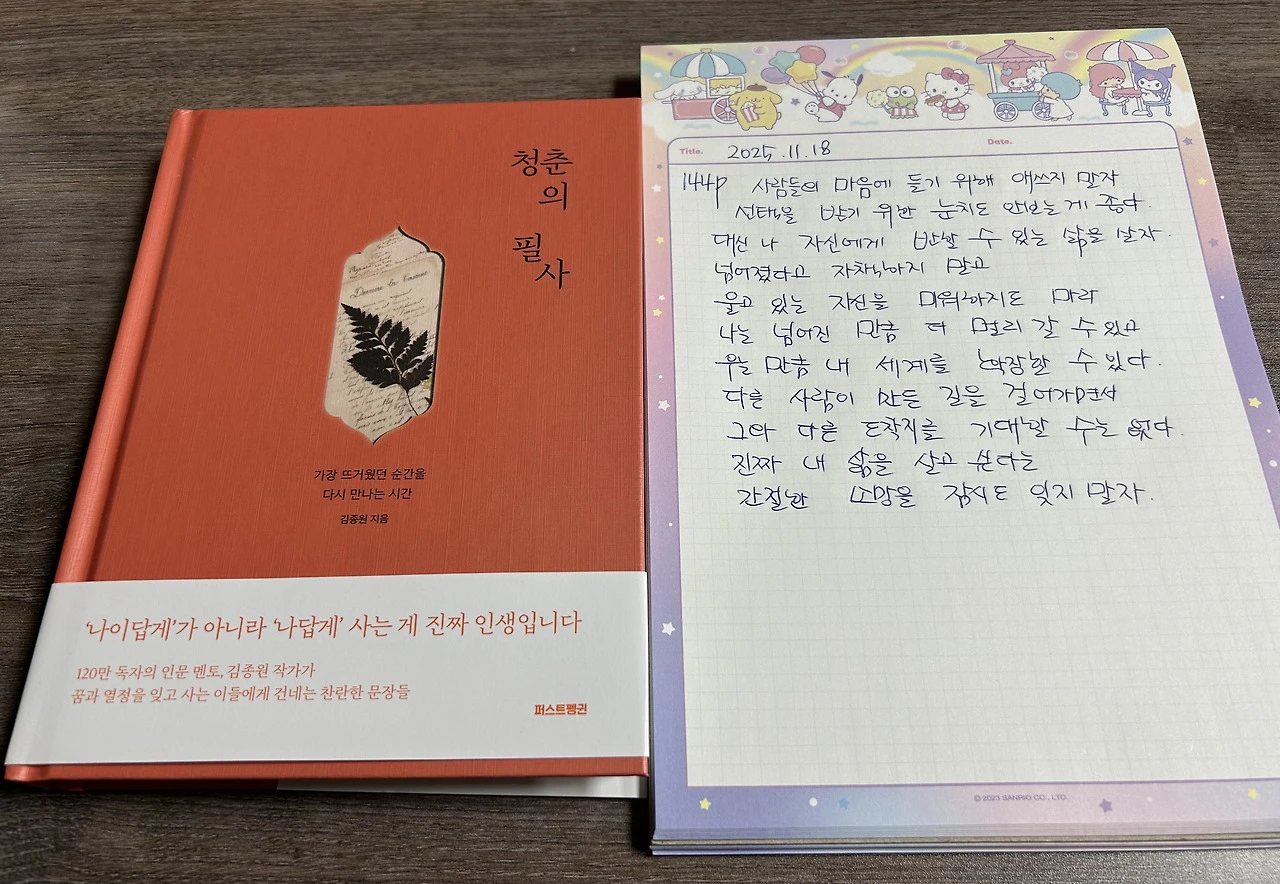 청춘
의
필
사
가장 뜨거웠던 순간을
다시 만나는 시간
김종원 지음
'나이답게'가 아니라 '나답게' 사는 게 진짜 인생입니다
120만 독자의 인문 멘토, 김종원 작가가
꿈과 열정을 잊고 사는 이들에게 건네는 찬란한 문장들
퍼스트펭귄
Title. 2025.11.18 Date.
144p 사람들의 마음에 들기 위해 애쓰지 말자
선택을 받기 위한 눈치도 안보는 게 좋다.
대신 나 자신에게 반할 수 있는 삶을 살자.
넘어졌다고 자책하지 말고
울고 있는 자신을 미워하지도 마라
나는 넘어진 만큼 더 멀리 갈 수 있고
우는 만큼 내 세계를 확장할 수 있다.
다른 사람이 만든 길을 걸어가면서
그와 다른 도착지를 기대할 수는 없다.
진짜 내 삶을 살고 싶다는
간절한 소망을 잠시도 잊지 말자.
© 2023 SANRIO CO., LTD.